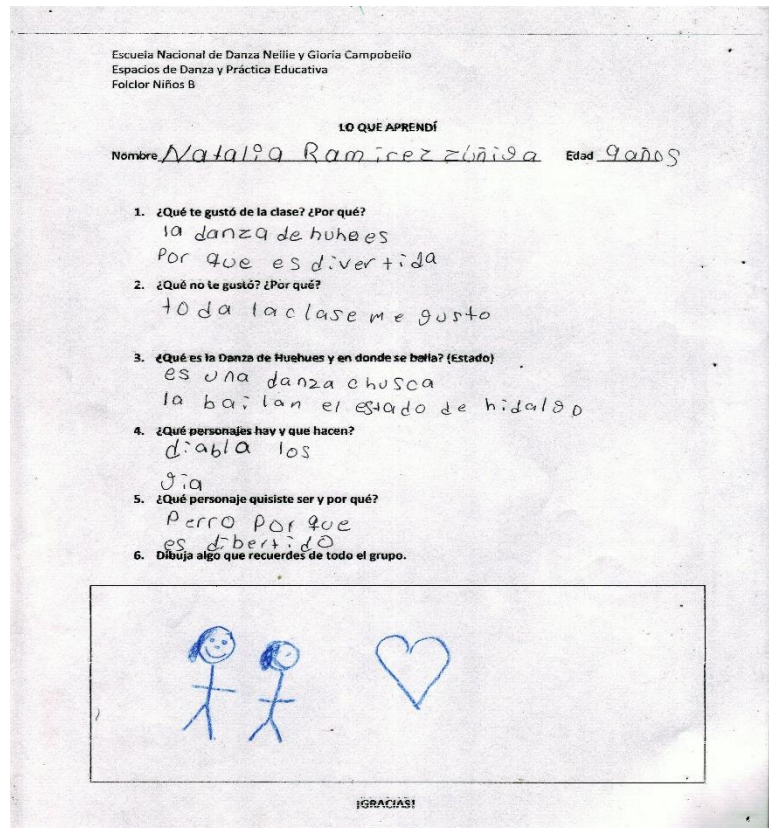 Escuela Nacional de Danza Nellie y Gloria Campobello
Espacios de Danza y Práctica Educativa
Folclor Niños B
LO QUE APRENDÍ
Nombre Natalia Ramirez zúñiga Edad 9 años
1. ¿Qué te gustó de la clase? ¿Por qué?
la danza de huhees
Por que es divertida
2. ¿Qué no te gustó? ¿Por qué?
toda la clase me gusto
3. ¿Qué es la Danza de Huehues y en donde se baila? (Estado)
es una danza chusca
la bailan el estado de hidalgo
4. ¿Qué personajes hay y que hacen?
diabla los
gia
5. ¿Qué personaje quisiste ser y por qué?
Perro Por que
es dibertido
6. Dibuja algo que recuerdes de todo el grupo.
¡GRACIAS!